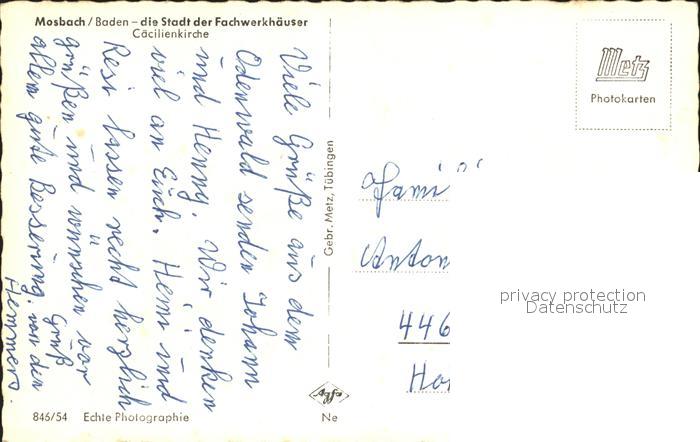 Mosbach / Baden – die Stadt der Fachwerkhäuser
Cäcilienkirche
Viele Grüße aus dem
Odenwald senden Johann
und Henny. Wir denken
viel an Euch. Heini und
Resi lassen recht herzlich
grüßen und wünschen vor
allem gute Besserung. Gruß
von den
Hemmers.
846/54 Echte Photographie
Gebr. Metz, Tübingen
Agfa
Ne
Metz
Photokarten
Fami
Anton
446
Ho
privacy protection
Datenschutz